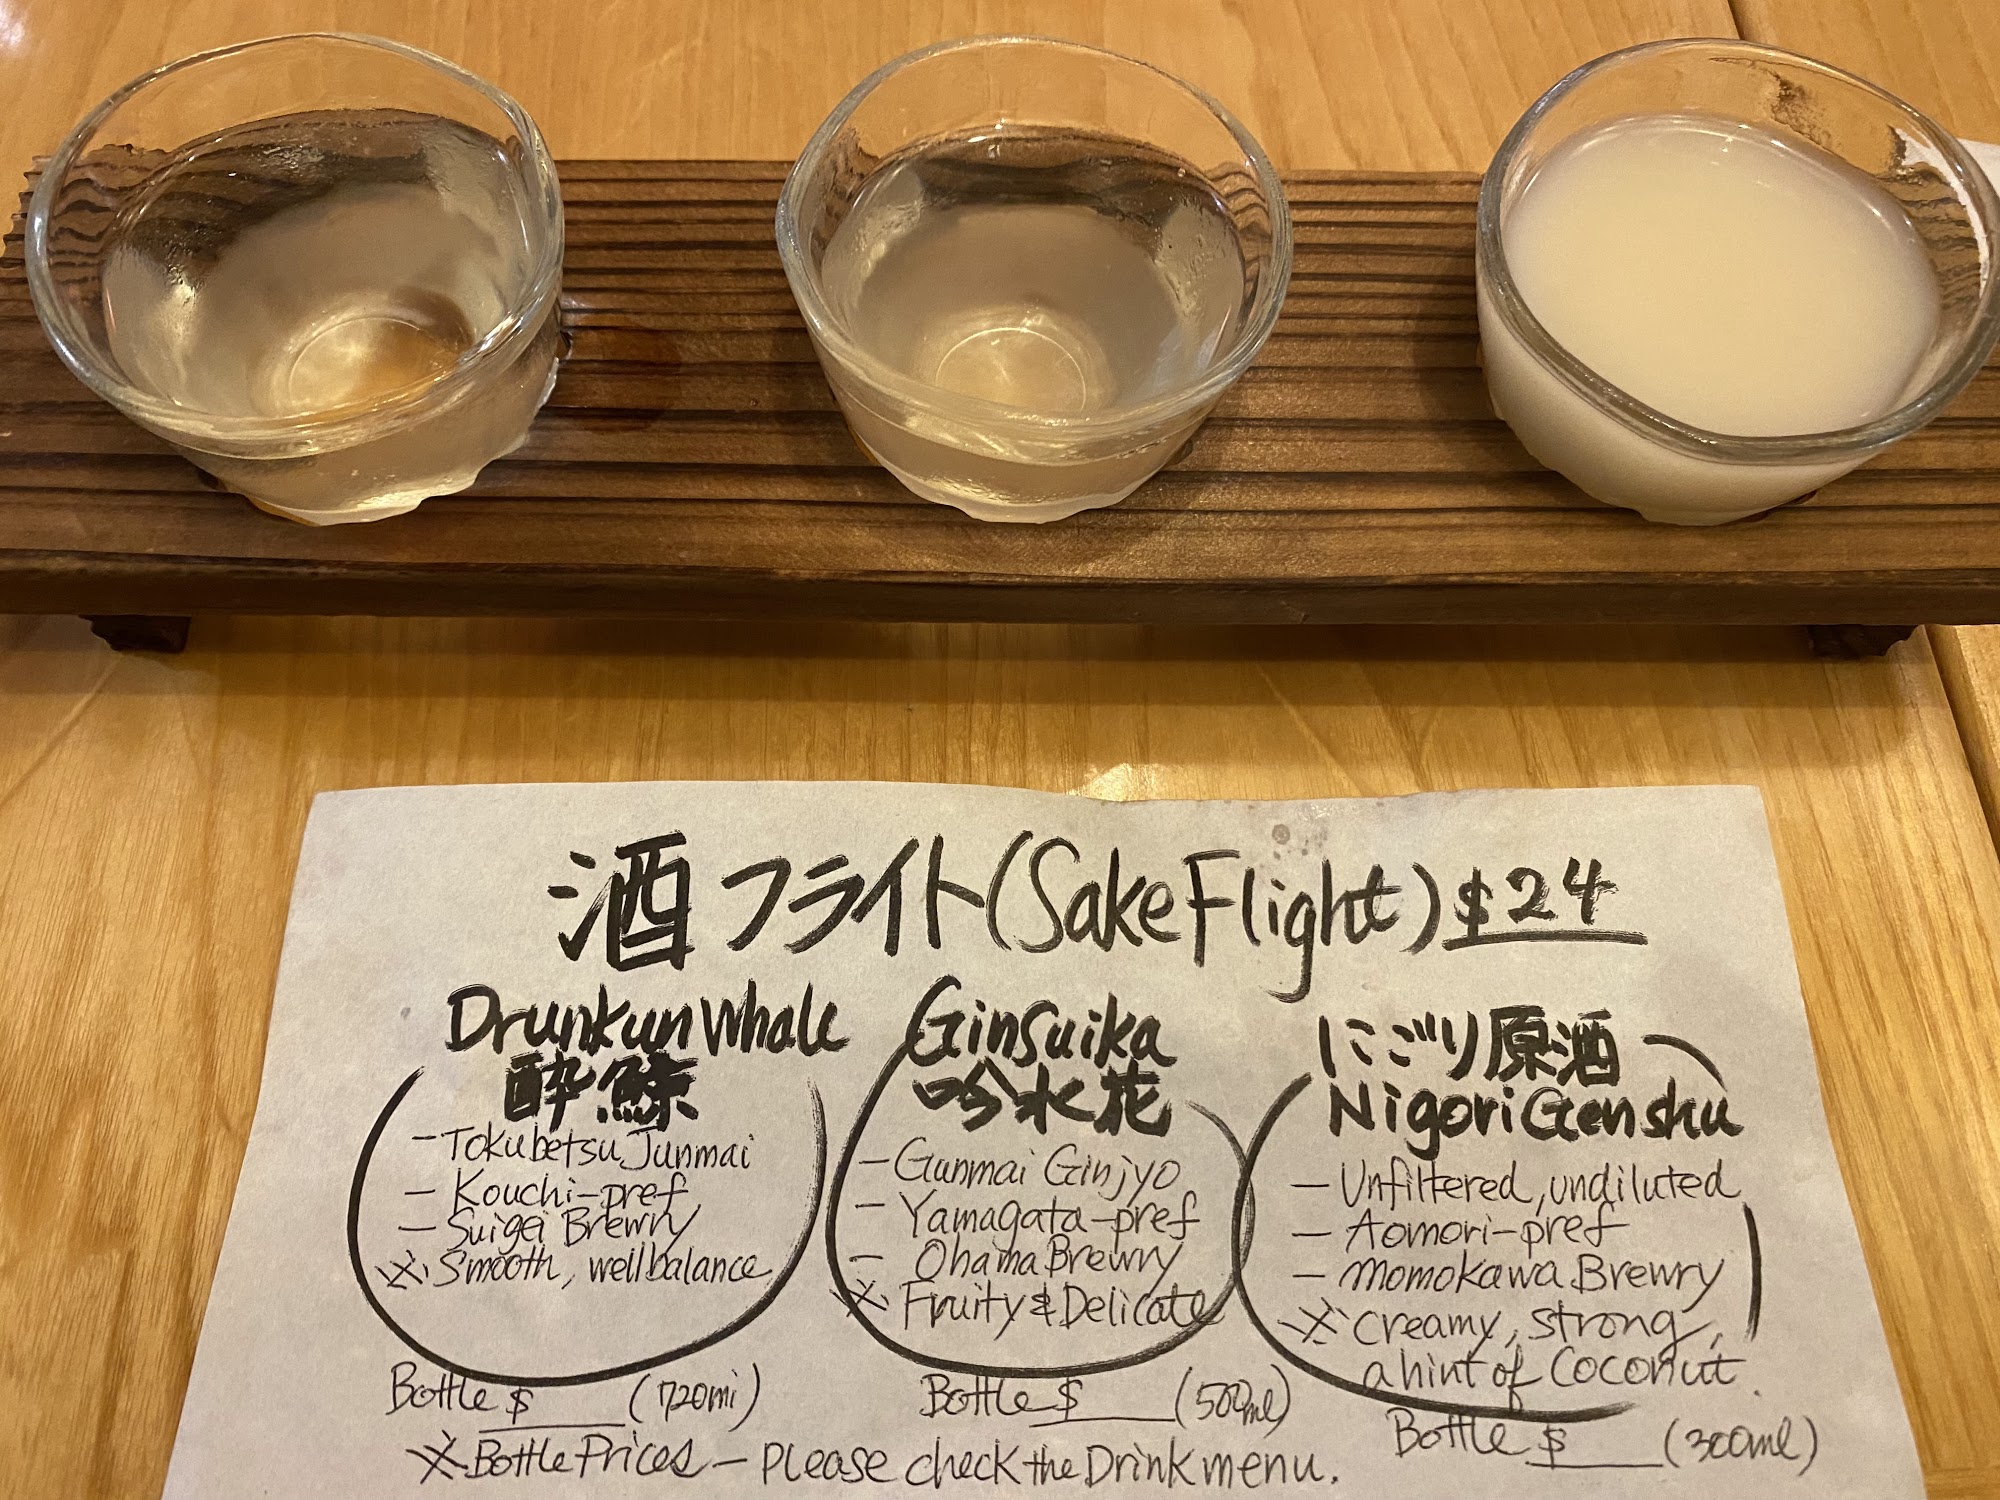 酒フライト(Sake Flight) $24
Drunkun Whale
酔鯨
- Tokubetsu Junmai
- Kouchi-pref
- Suigei Brewry
※ Smooth, wellbalance
Bottle $____ (720ml)
Ginsuika
吟水花
- Gunmai Ginjyo
- Yamagata-pref
- Ohama Brewry
※ Fruity & Delicate
Bottle $____ (500ml)
にごり原酒
Nigori Genshu
- Unfiltered, undiluted
- Aomori-pref
- Momokawa Brewry
※ Creamy, strong,
a hint of Coconut.
Bottle $____ (300ml)
※ Bottle Prices - Please check the Drink menu.